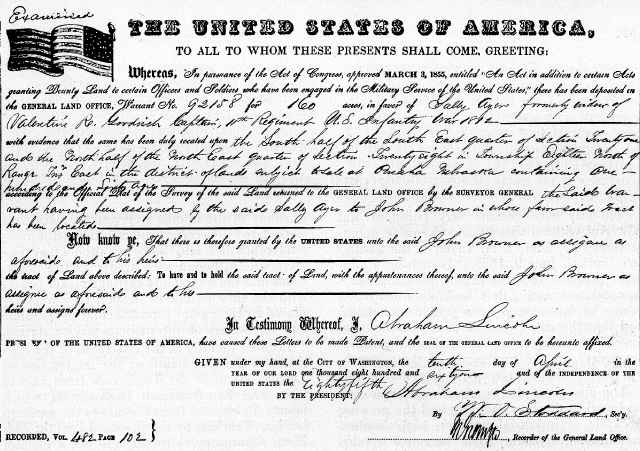 Examined
THE UNITED STATES OF AMERICA,
TO ALL TO WHOM THESE PRESENTS SHALL COME, GREETING:
Whereas, In pursuance of the Act of Congress, approved MARCH 3, 1855, entitled "An Act in addition to certain Acts
granting Bounty Land to certain Officers and Soldiers who have been engaged in the Military Service of the United States," there has been deposited
in the GENERAL LAND OFFICE, Warrant No. 92158 for 160 acres, in favor of Sally Ayer formerly widow of
Valentine R. Goodrich Captain, 11th Regiment U.S. Infantry War 1812
with evidence that the same has been duly located upon the South half of the South East quarter of Section Twenty one
and the North half of the North East quarter of Section Twenty eight in Township Eighteen North of
Range East in the district of lands subject to sale at Omaha Nebraska containing One
hundred and sixty acres
according to the Official Plat of the Survey of the said Land returned to the GENERAL LAND OFFICE by the SURVEYOR GENERAL the said War
rant having been assigned by the said Sally Ayer to John Browner in whose favor said tract
has been located
Now know ye, That there is therefore granted by the UNITED STATES unto the said John Browner as assignee as
aforesaid and to his heirs
the tract of Land above described: To have and to hold the said tract of Land, with the appurtenances thereof, unto the said John Browner as
assignee as aforesaid and to his
heirs and assigns forever.
In Testimony Whereof, I, Abraham Lincoln
PRESIDENT OF THE UNITED STATES OF AMERICA, have caused these Letters to be made Patent, and the SEAL OF THE GENERAL LAND OFFICE to be hereunto affixed.
GIVEN under my hand, at the CITY OF WASHINGTON, the tenth day of April in the
YEAR OF OUR LORD one thousand eight hundred and sixty one and of the INDEPENDENCE OF THE
UNITED STATES the Eighty fifth
BY THE PRESIDENT: Abraham Lincoln
By W. O. Stoddard, Sec'y.
RECORDED, VOL. 482 PAGE 102
, Recorder of the General Land Office.